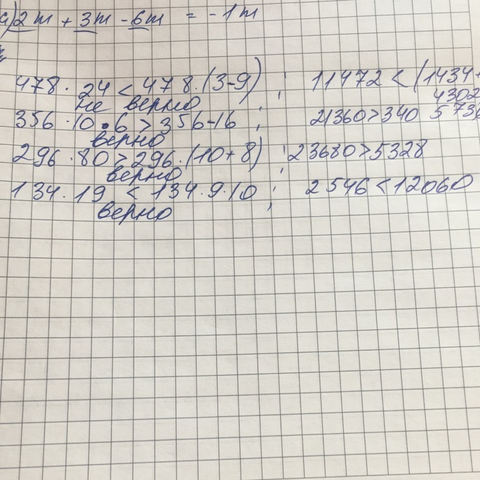 а) 2m + 3m - 6m = -1m
478 · 24 < 478 · (3-9) ; 11472 < (1434+
не верно 4302
356 · 10 · 6 > 356-16 ; 21360 > 340 5736
верно
296 · 80 > 296 · (10+8) ; 23680 > 5328
верно
134 · 19 < 134 · 9 · 10 ; 2546 < 12060
верно